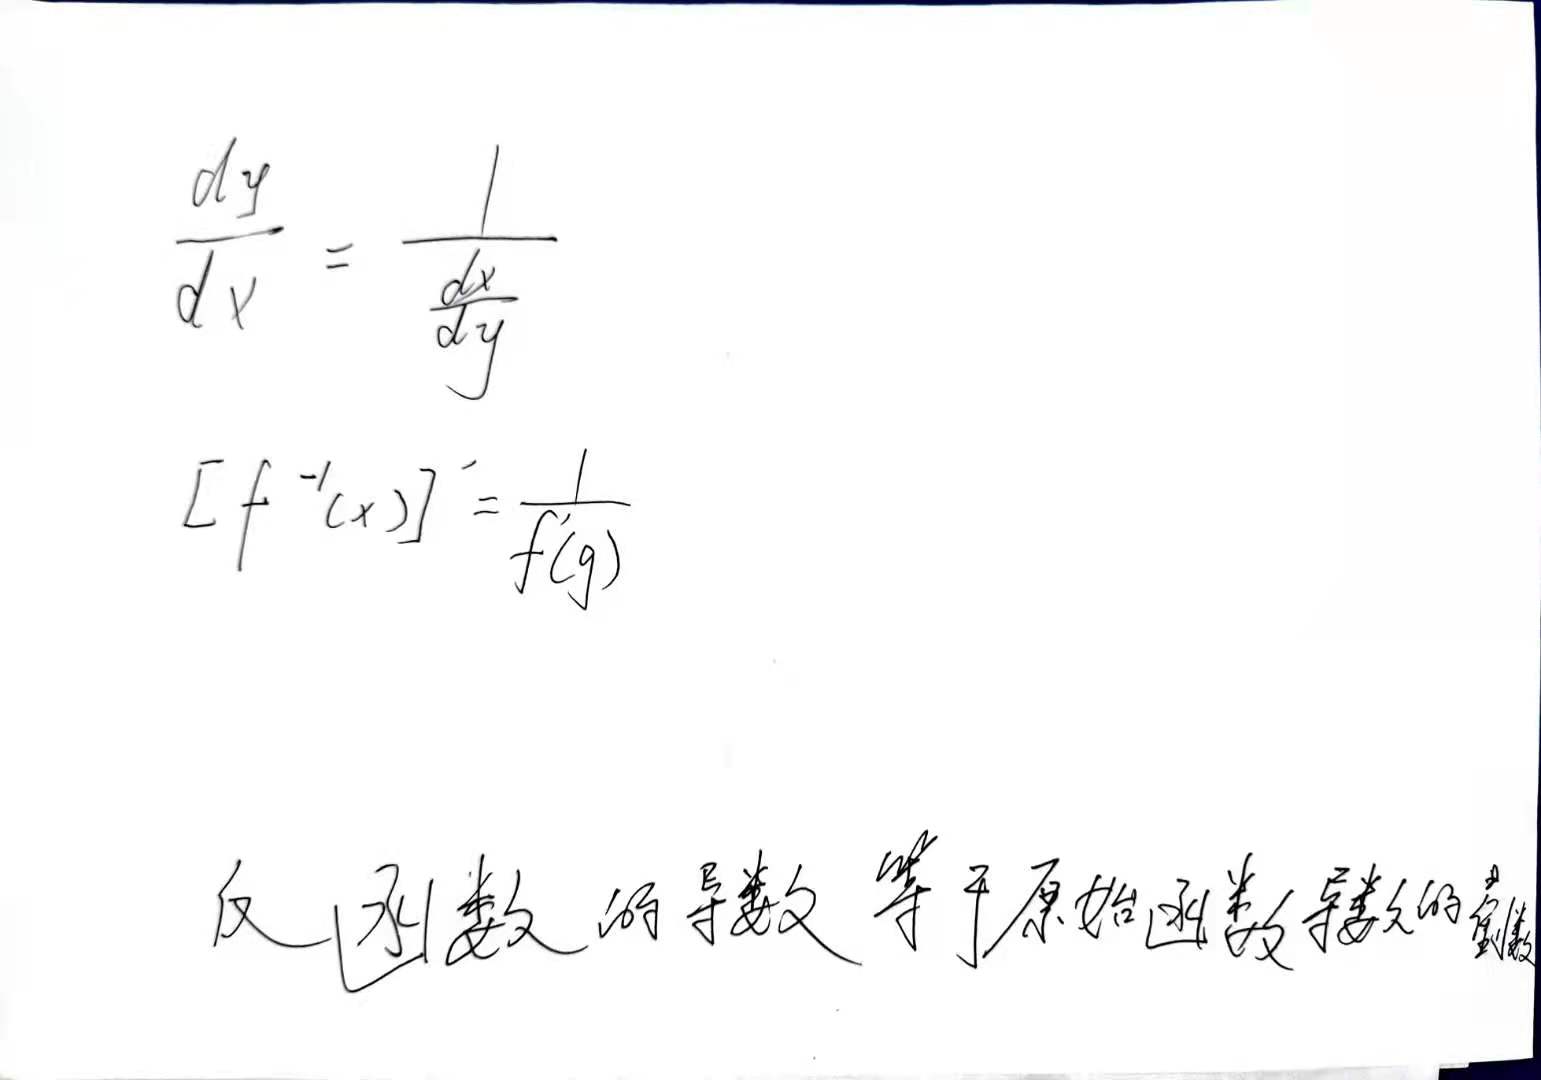 dy/dx = 1/(dx/dy)
[f⁻¹(x)]′ = 1/f′(y)
反函数的导数等于原始函数导数的倒数